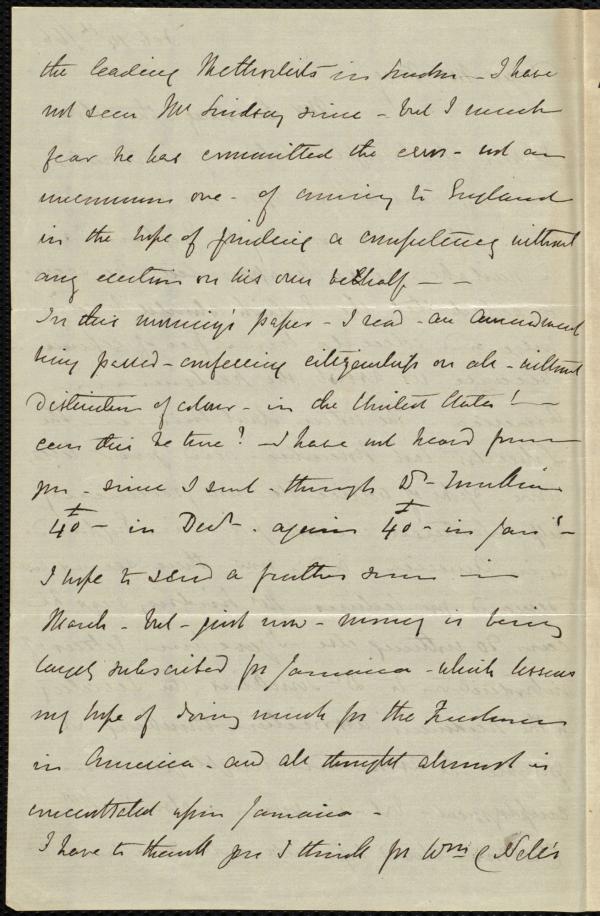 the leading Methodists in London - I have
not seen Mr Lindsay since - but I much
fear he has committed the error - not an
uncommon one - of coming to England
in the hope of finding a competency without
any exertion on his own behalf - -
In this morning's paper - I read - an amendment
being passed - conferring citizenship on all - without
distinction of colour - in the United States! -
can this be true? - I have not heard from
you - since I sent - through Dr -
£40 - in Decr - again £40 - in Jany -
I hope to send a further sum in
March - but - just now - money is being
largely subscribed for Jamaica - which lessens
my hope of doing much for the Freedmen
in America - and all thought almost is
concentrated upon Jamaica -
I have to thank you I think for Wm C Nell's